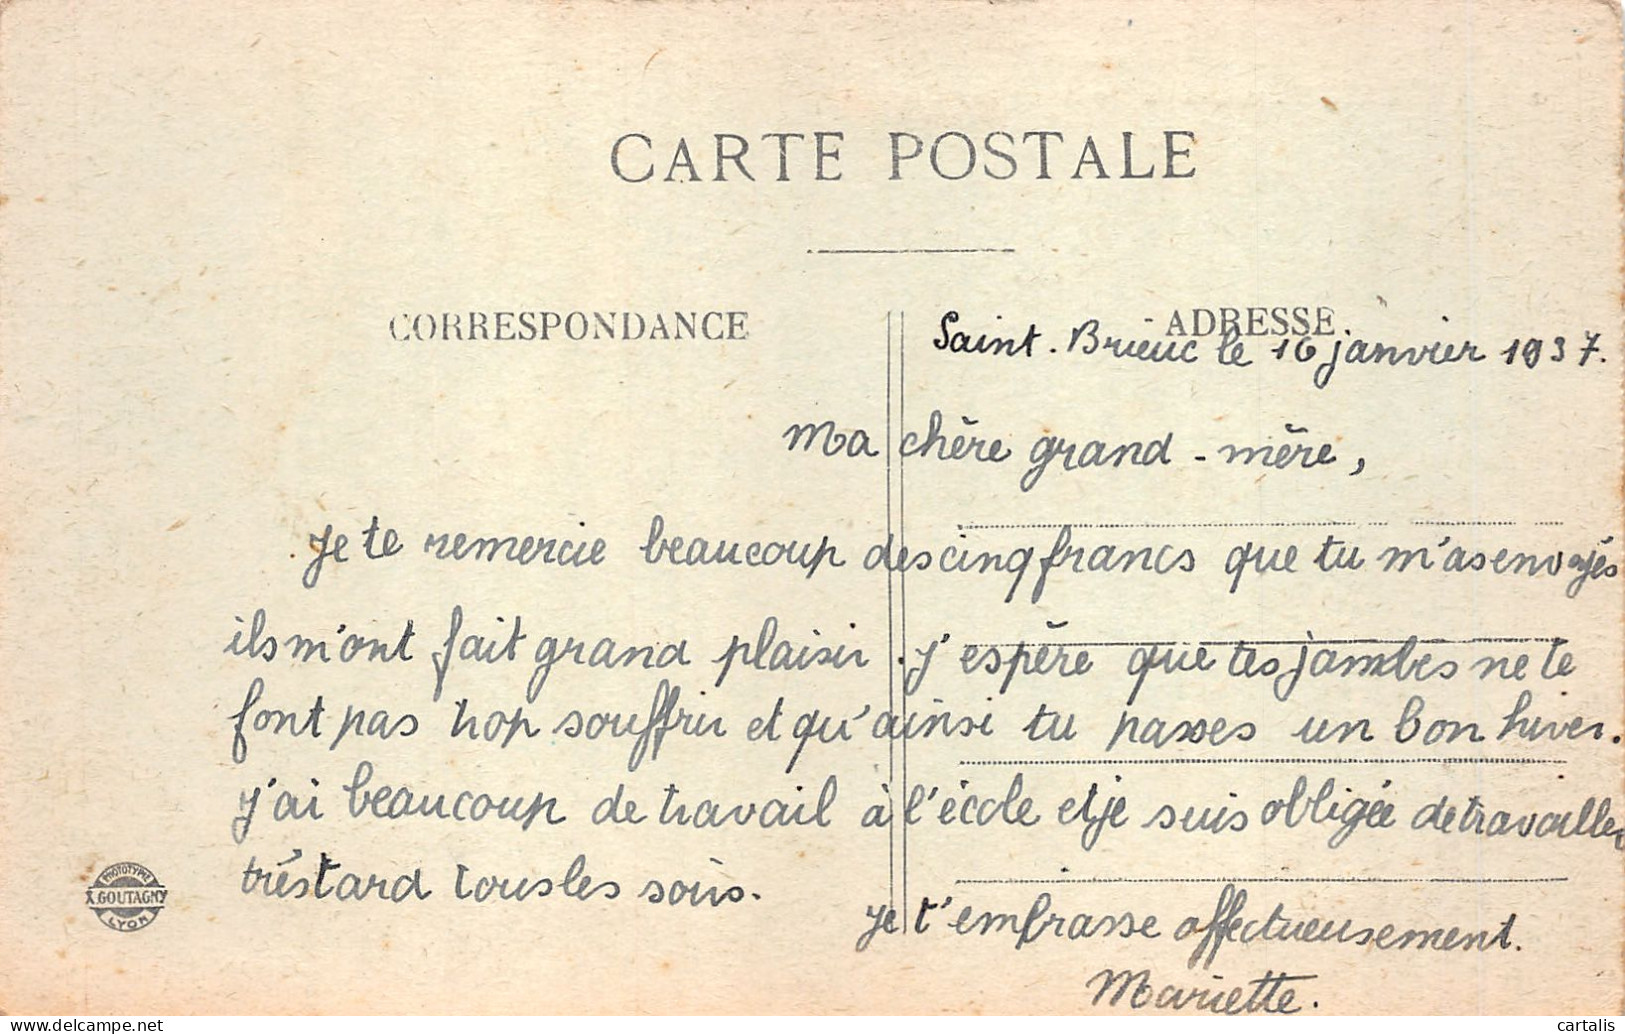 CARTE POSTALE
CORRESPONDANCE
ADRESSE
Saint-Brieuc le 16 janvier 1937.
Ma chère grand-mère,
Je te remercie beaucoup des cinq francs que tu m'as envoyés
ils m'ont fait grand plaisir. J'espère que tes jambes ne te
font pas trop souffrir et qu'ainsi tu passes un bon hiver.
J'ai beaucoup de travail à l'école et je suis obligée de travailler
très tard tous les soirs.
Je t'embrasse affectueusement.
Mariette.
PHOTOTYPIE
X. GOUTAGNY
LYON
cartalis
www.delcampe.net